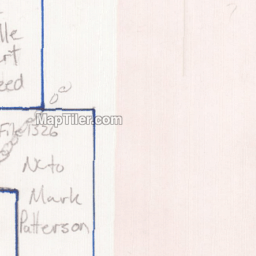 lle
rt
eed
MapTiler.com
File 1326
N to
Mark
Patterson